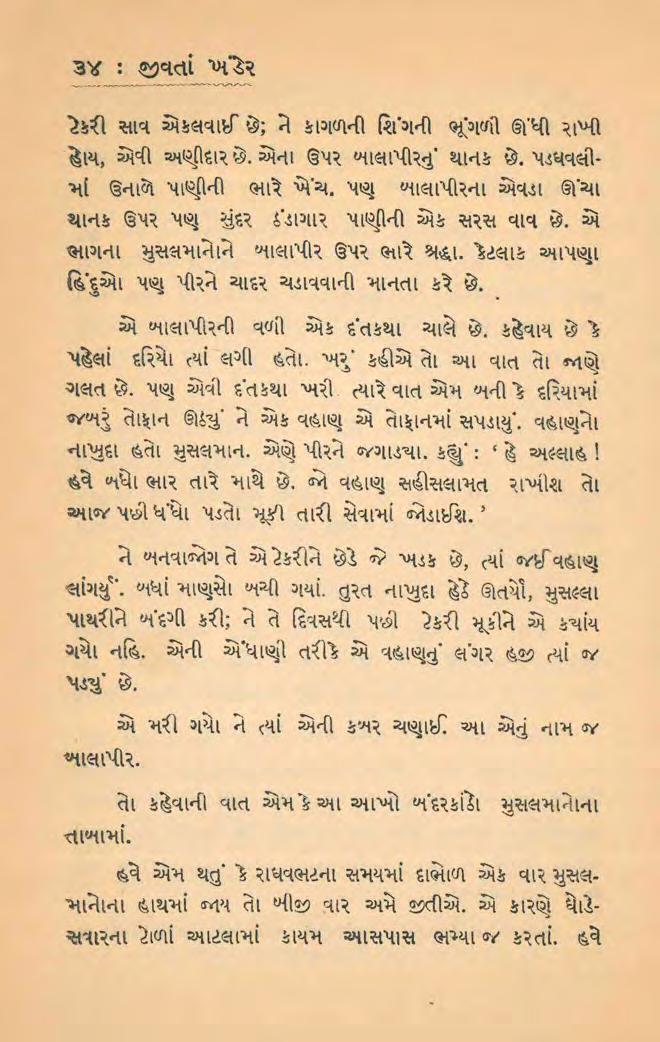 ૩૪ : જીવતાં ખંડેર
ટેકરી સાવ એકલવાઈ છે; ને કાગળની શિંગની ભૂંગળી ઊંધી રાખી
હોય, એવી અણીદાર છે. એના ઉપર બાલાપીરનું થાનક છે. પડઘવલી-
માં ઉનાળે પાણીની ભારે ખેંચ. પણ બાલાપીરના એવડા ઊંચા
થાનક ઉપર પણ સુંદર ઠંડાગાર પાણીની એક સરસ વાવ છે. એ
ભાગના મુસલમાનોને બાલાપીર ઉપર ભારે શ્રદ્ધા. કેટલાક આપણા
હિંદુઓ પણ પીરને ચાદર ચડાવવાની માનતા કરે છે.
એ બાલાપીરની વળી એક દંતકથા ચાલે છે. કહેવાય છે કે
પહેલાં દરિયો ત્યાં લગી હતો. ખરું કહીએ તો આ વાત તો જાણે
ગલત છે. પણ એવી દંતકથા ખરી. ત્યારે વાત એમ બની કે દરિયામાં
જબરું તોફાન ઊઠ્યું ને એક વહાણ એ તોફાનમાં સપડાયું. વહાણનો
નાખુદા હતો મુસલમાન. એણે પીરને જગાડ્યા. કહ્યું : ‘ હે અલ્લાહ !
હવે બધો ભાર તારે માથે છે. જો વહાણ સહીસલામત રાખીશ તો
આજ પછી ધંધો પડતો મૂકી તારી સેવામાં જોડાઈશ. ’
ને બનવાજોગ તે એ ટેકરીને છેડે જે ખડક છે, ત્યાં જઈ વહાણ
લાંગર્યું. બધાં માણસો બચી ગયાં. તુરત નાખુદા હેઠે ઊતર્યો, મુસલ્લા
પાથરીને બંદગી કરી; ને તે દિવસથી પછી ટેકરી મૂકીને એ ક્યાંય
ગયો નહિ. એની એંધાણી તરીકે એ વહાણનું લંગર હજી ત્યાં જ
પડ્યું છે.
એ મરી ગયો ને ત્યાં એની કબર ચણાઈ. આ એનું નામ જ
બાલાપીર.
તો કહેવાની વાત એમ કે આ આખો બંદરકાંઠો મુસલમાનોના
તાબામાં.
હવે એમ થતું કે રાઘવભટના સમયમાં દાભોળ એક વાર મુસલ-
માનોના હાથમાં જાય તો બીજી વાર અમે જીતીએ. એ કારણે ઘોડે-
સવારના ટોળાં આટલામાં કાયમ આસપાસ ભમ્યા જ કરતાં. હવે